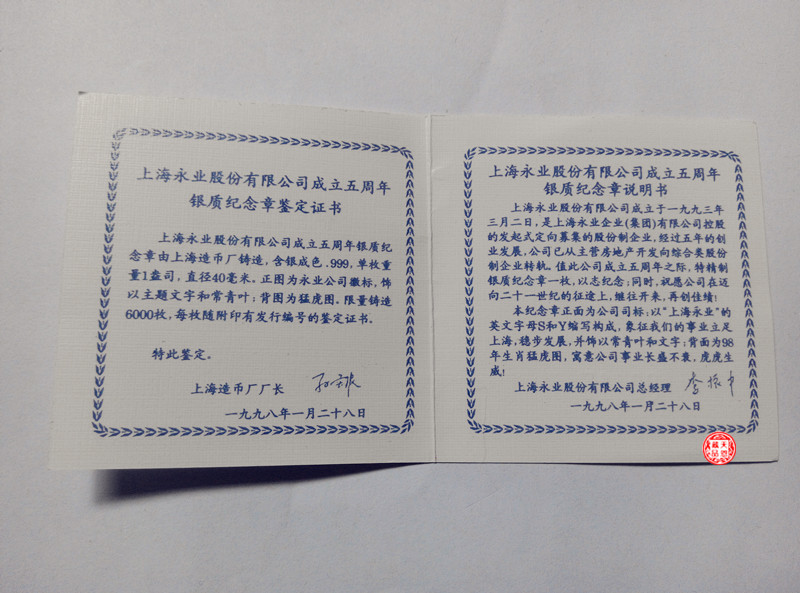 上海永业股份有限公司成立五周年
银质纪念章鉴定证书
上海永业股份有限公司成立五周年银质纪
念章由上海造币厂铸造,含银成色.999,单枚重
量1盎司,直径40毫米。正图为永业公司徽标,饰
以主题文字和常青叶;背图为猛虎图。限量铸造
6000枚,每枚随附印有发行编号的鉴定证书。
特此鉴定。
上海造币厂厂长
一九九八年一月二十八日
上海永业股份有限公司成立五周年
银质纪念章说明书
上海永业股份有限公司成立于一九九三年
三月二日,是上海永业企业(集团)有限公司控股
的发起式定向募集的股份制企业,经过五年的创
业发展,公司已从主营房地产开发向综合类股份
制企业转轨。值此公司成立五周年之际,特精制
银质纪念章一枚,以志纪念;同时,祝愿公司在迈
向二十一世纪的征途上,继往开来,再创佳绩!
本纪念章正面为公司司标:以“上海永业”的
英文字母S和Y缩写构成,象征我们的事业立足
上海,稳步发展,并饰以常青叶和文字;背面为98
年生肖猛虎图,寓意公司事业长盛不衰,虎虎生
威!
上海永业股份有限公司总经理
一九九八年一月二十八日